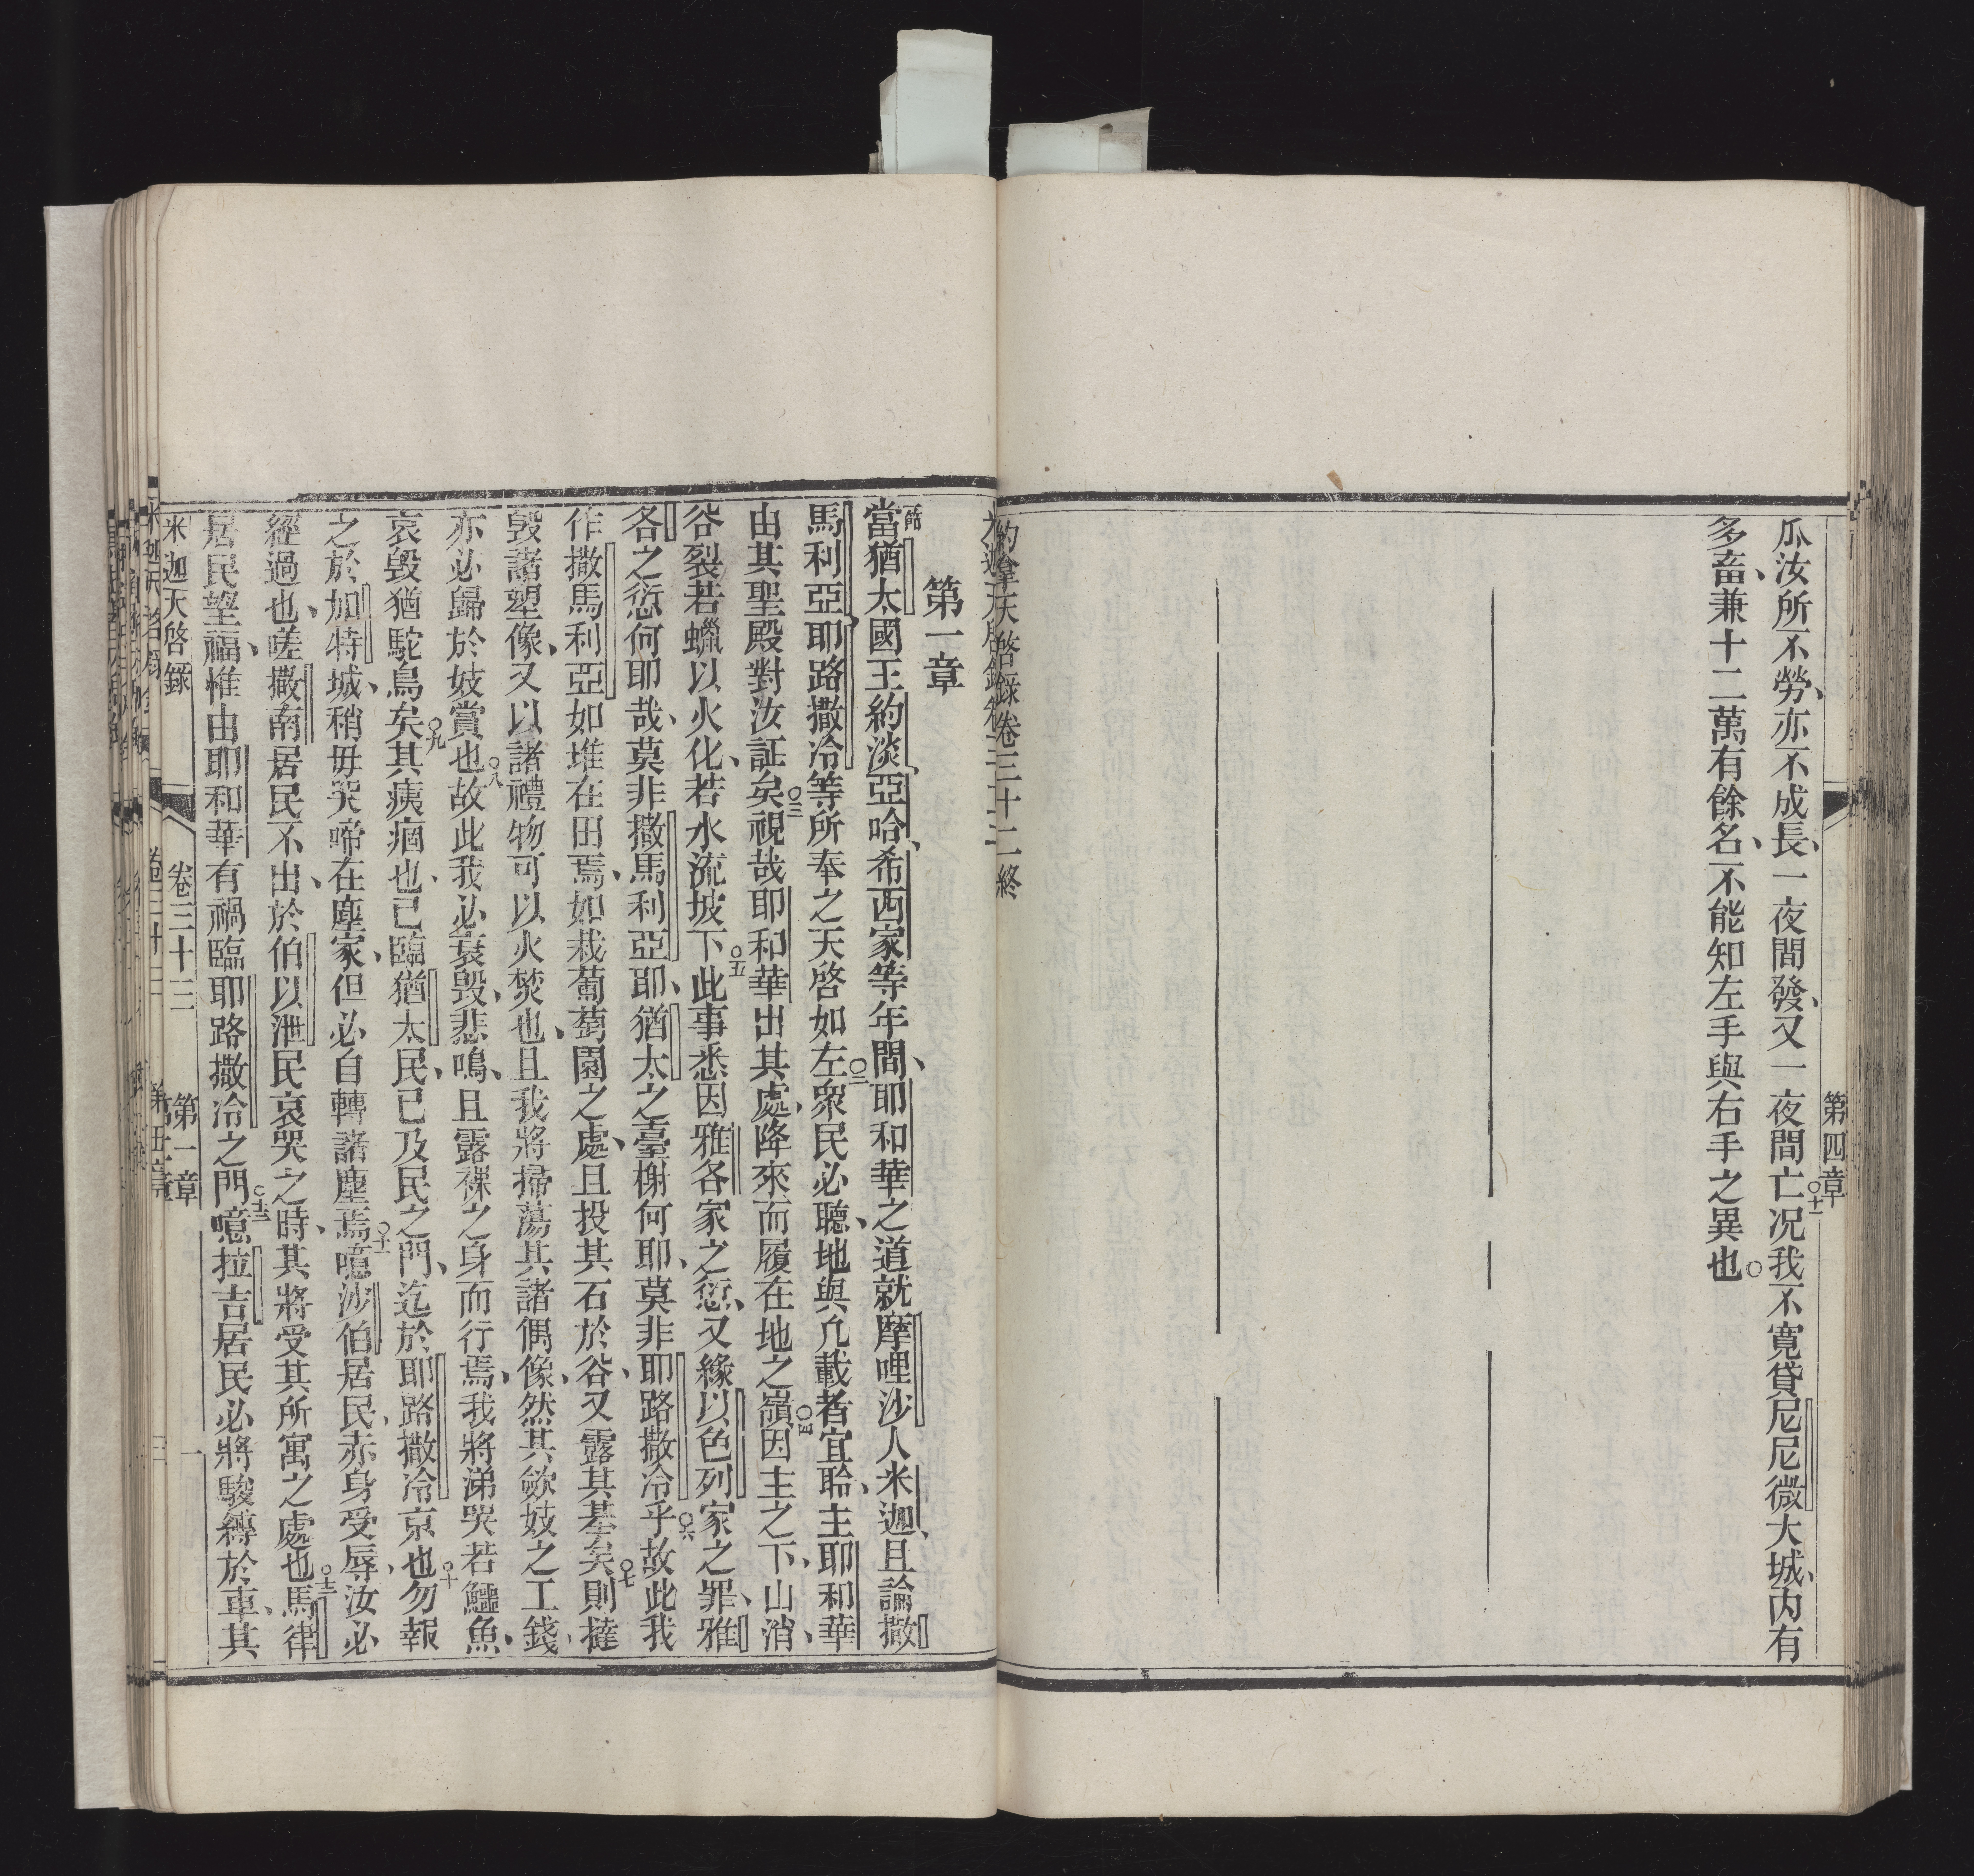 第四章
瓜汝所不勞、亦不成長、一夜間發、又一夜間亡○十一况我不寬貸尼尼微大城、內有
多畜、兼十二萬有餘名、不能知左手與右手之異也○
約拿天啓錄卷三十二終
第一章
○一節當猶太國王約淡、亞哈、希西家等年間、耶和華之道就摩哩沙人米迦、且論撒
馬利亞、耶路撒冷等所奉之天啓如左○二衆民必聽、地與凢載者宜聆、主耶和華
由其聖殿對汝証矣○三視哉耶和華出其處、降來而履在地之嶺○四因主之下、山消、
谷裂若蠟以火化、若水流坡下○五此事悉因雅各家之愆、又緣以色列家之罪、雅
各之愆何耶哉、莫非撒馬利亞耶、猶太之臺榭何耶、莫非耶路撒冷乎○六故此我
作撒馬利亞如堆在田焉、如栽葡萄園之處、且投其石於谷、又露其基矣○七則撻
毀諸塑像、又以諸禮物可以火焚也、且我將掃蕩其諸偶像、然其歛妓之工錢、
亦必歸於妓賞也○八故此我必哀毀、悲鳴、且露裸之身而行焉、我將涕哭若鱷魚、
哀毀猶駝鳥矣○九其痍痼也、已臨猶太民、已及民之門、迄於耶路撒冷京也○十勿報
之於加特城、稍毋哭啼在塵家、但必自轉諸塵焉○十一噫沙伯居民、赤身受辱、汝必
經過也、嗟撒南居民不出、於伯以泄民哀哭之時、其將受其所寓之處也○十二馬律
居民望福、惟由耶和華有禍臨耶路撒冷之門○十三噫拉吉居民必將駿縛於車、其
米迦天啓錄 卷三十三 第一章 一